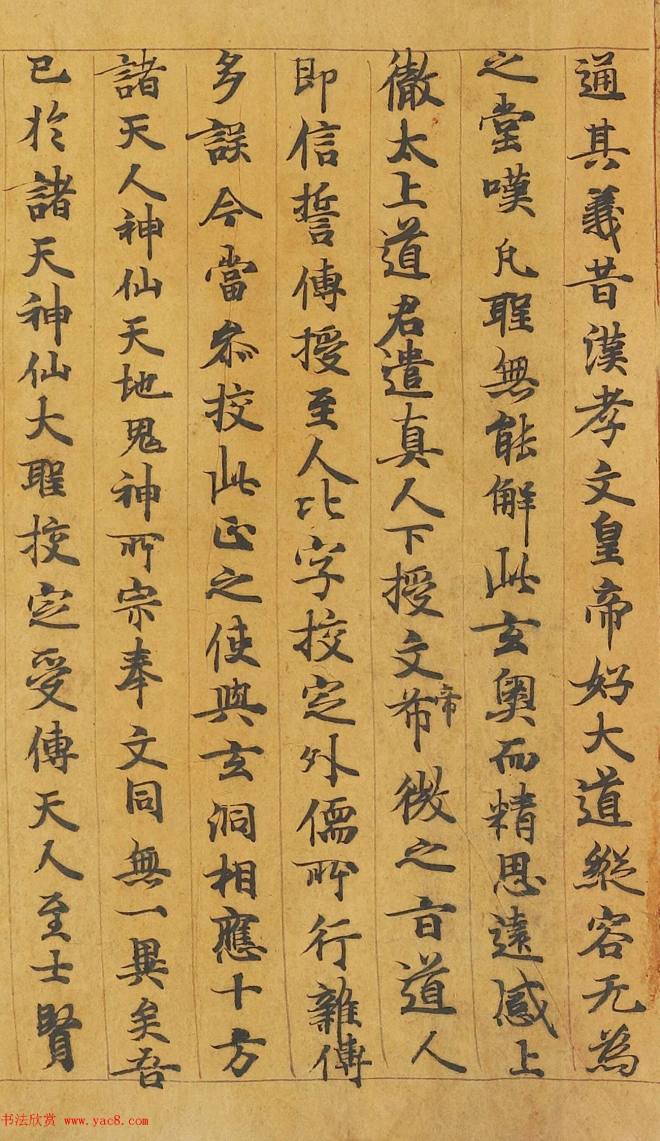 通其義昔漢孝文皇帝好大道縱容无為
之堂嘆凡聖無能解此玄奧而精思遠感上
徹太上道君遣真人下授文希帝微之旨道人
即信誓傳授至人比字挍定外儒所行雜傳
多誤今當叅挍此正之使與玄洞相應十方
諸天人神仙天地鬼神所宗奉文同無一異矣吾
已於諸天神仙大聖挍定受傳天人至士賢
书法欣赏 www.yac8.com